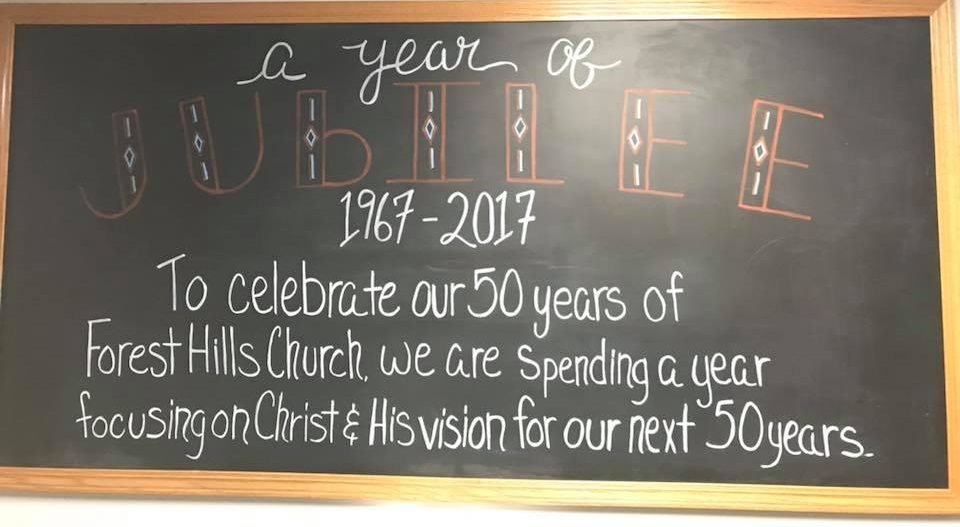 a year of
JUbILEE
1967-2017
To celebrate our 50 years of
Forest Hills Church, we are spending a year
focusing on Christ & His vision for our next 50 years.